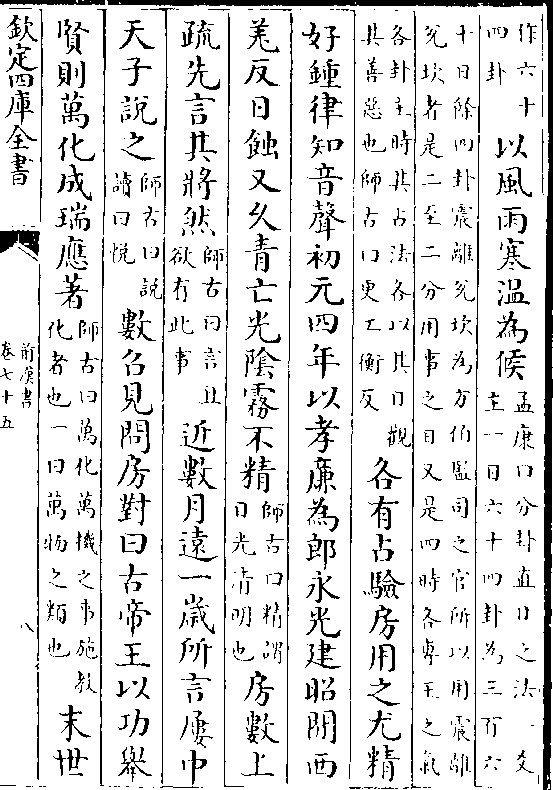 作六十四卦以風雨寒温為候孟康曰分卦直日之法一爻主一日六十四卦為三百六
十日餘四卦震離兊坎為方伯監司之官所以用震離兊坎者是二至二分用事之日又是四時各專王之氣
各卦主時其占法各以其日觀其善惡也師古曰更工衡反各有占驗房用之尤精
好鍾律知音聲初元四年以孝廉為郎永光建昭間西
羌反日蝕又久青亡光陰霧不精師古曰精謂日光清明也房數上
疏先言其將然師古曰言且欲有此事近數月逺一嵗所言屢中
天子說之師古曰說讀曰悦數召見問房對曰古帝王以功舉
賢則萬化成瑞應著師古曰萬化萬機之事施教化者也一曰萬物之類也末世
欽定四庫全書
前漢書
卷七十五
八